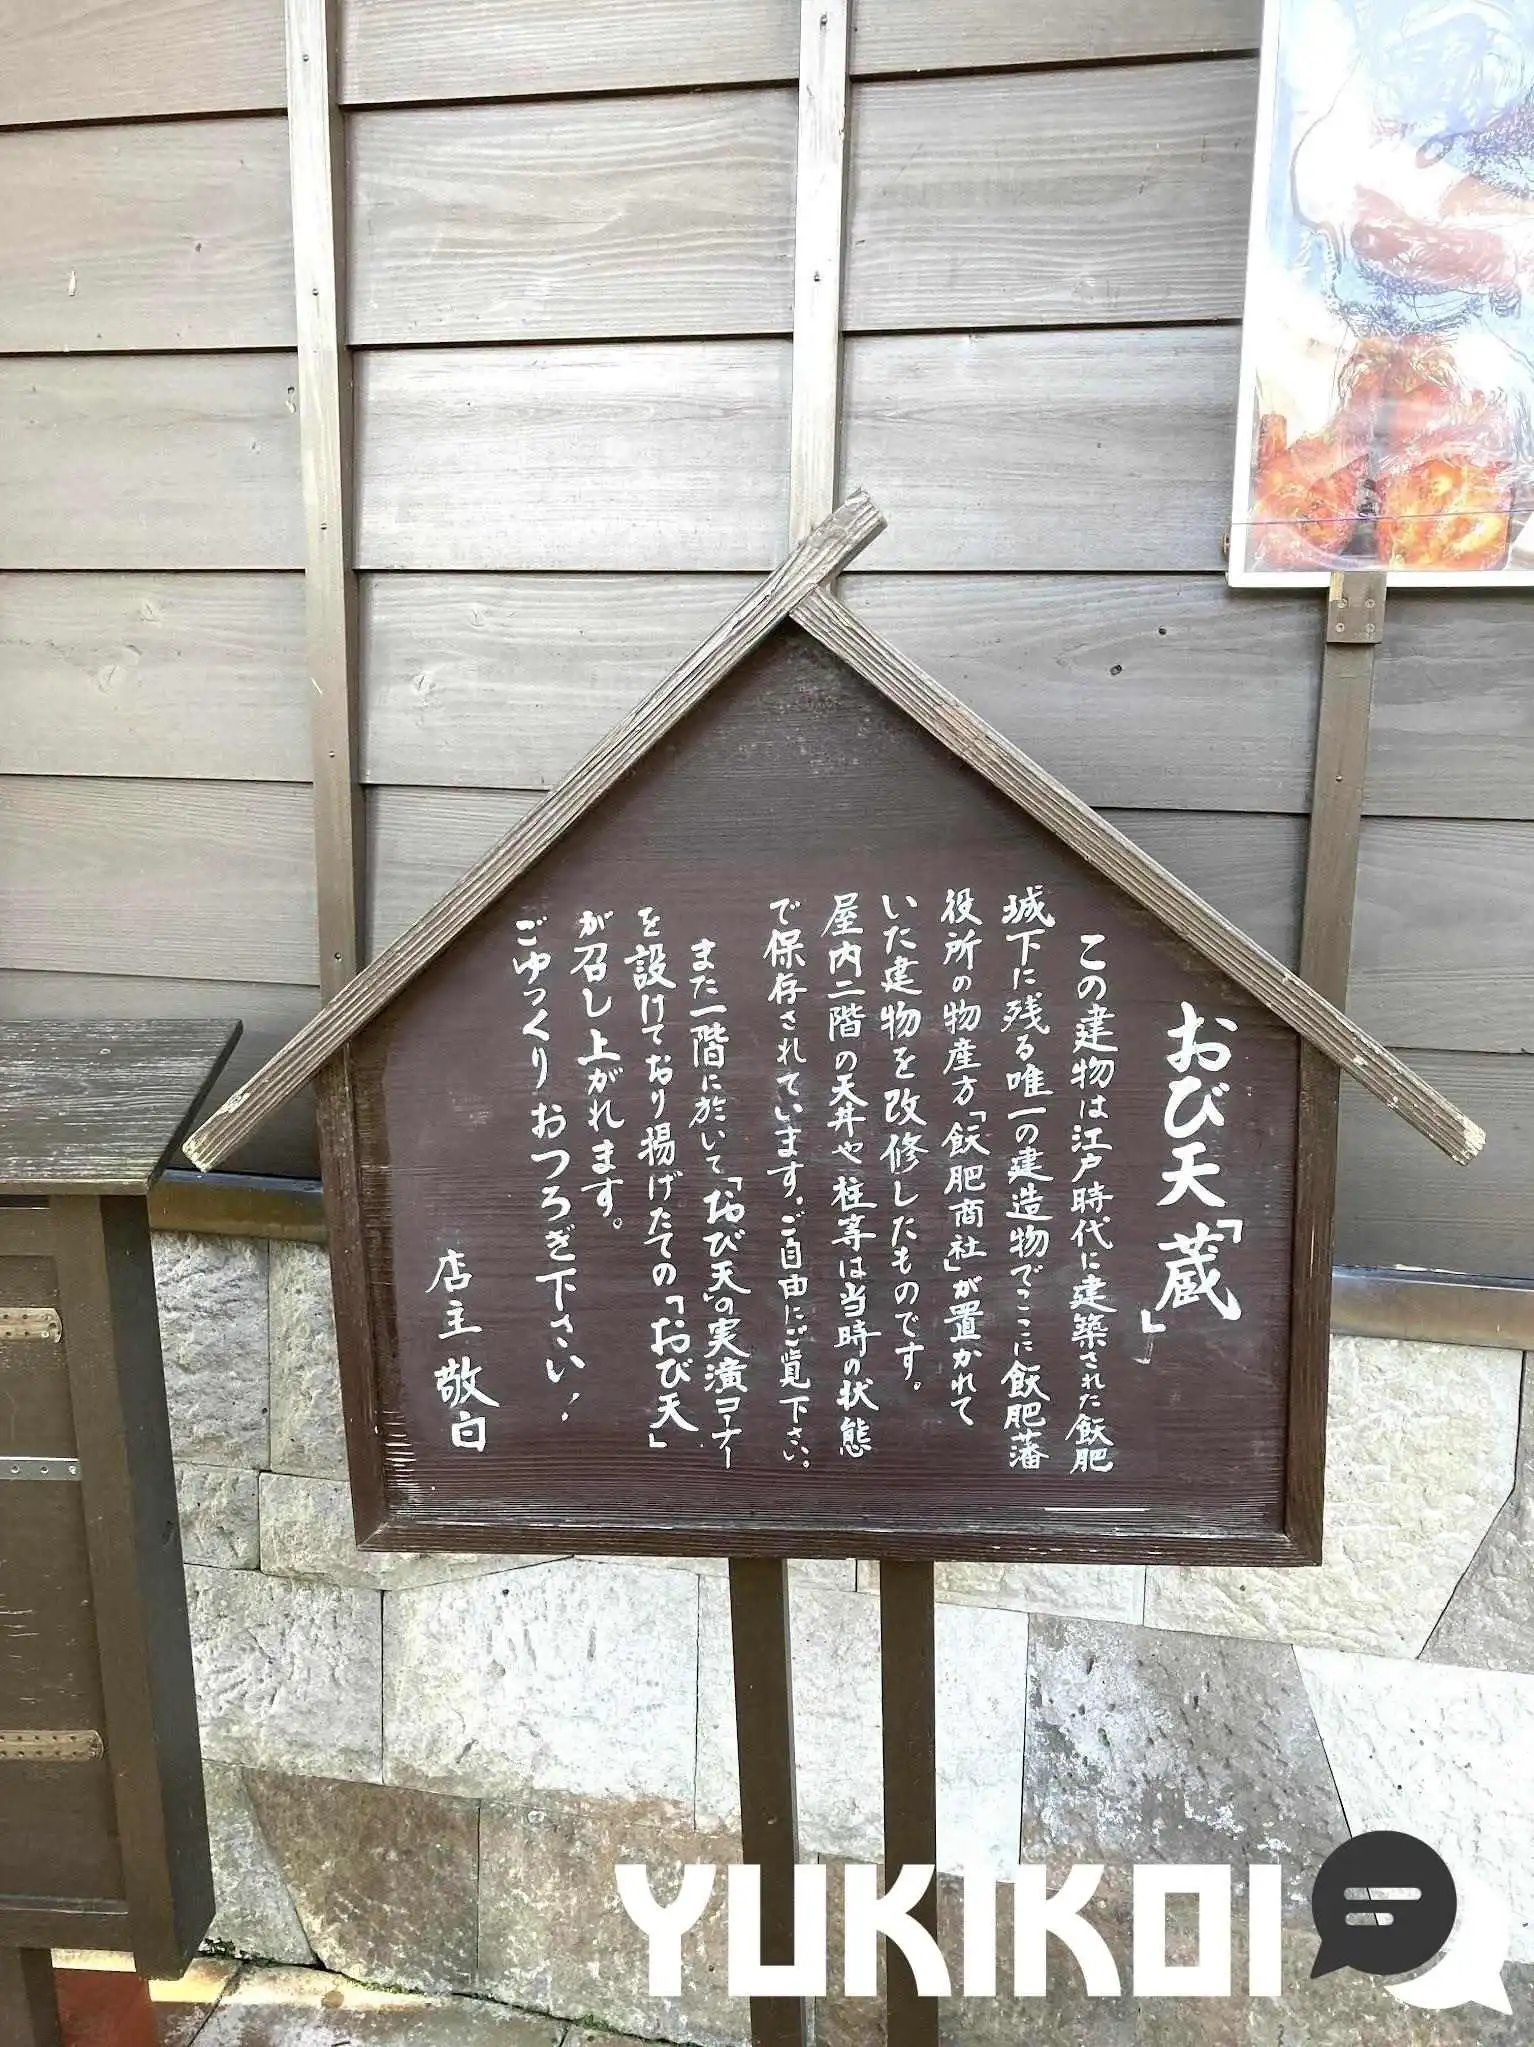 おび天「蔵」
この建物は江戸時代に建築された飫肥
城下に残る唯一の建造物でここに飫肥藩
役所の物産方「飫肥商社」が置かれて
いた建物を改修したものです。
屋内二階の天井や柱等は当時の状態
で保存されています。ご自由にご覧下さい。
また一階に於いて「おび天」の実演コーナー
を設けており揚げたての「おび天」
が召し上がれます。
ごゆっくりおつろぎ下さい!
店主 敬白
YUKIKOI